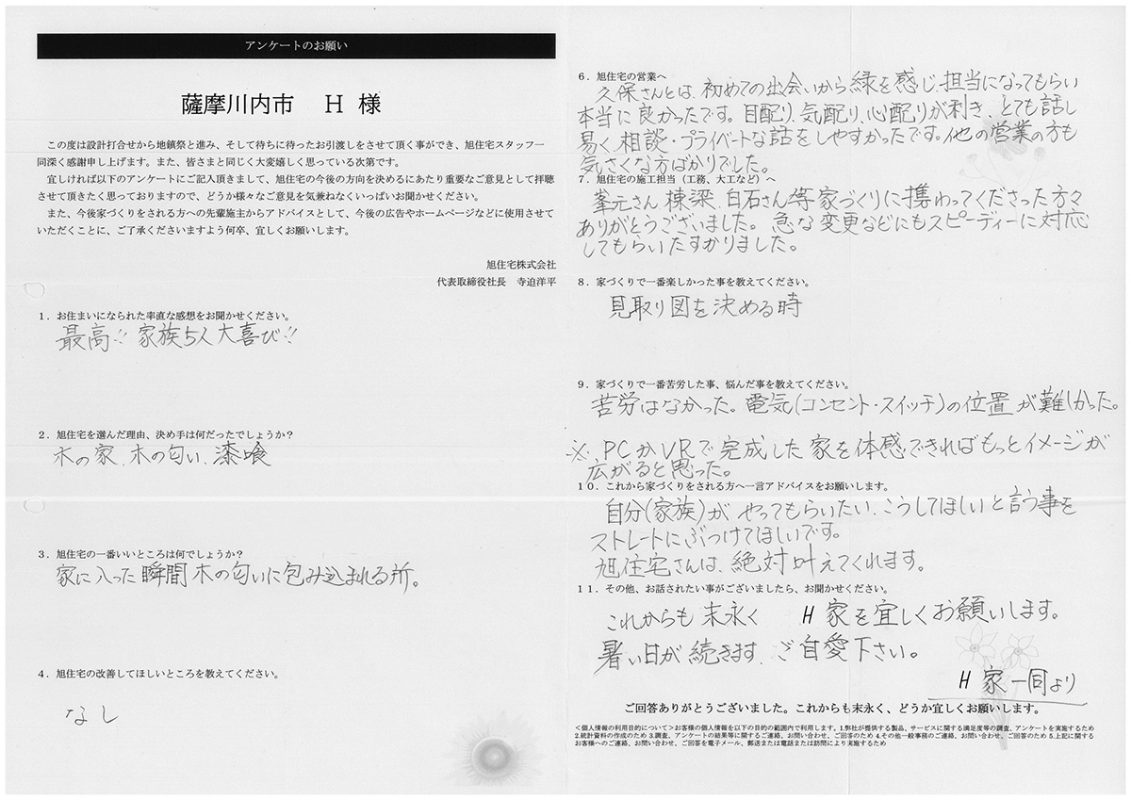 アンケートのお願い
薩摩川内市　H 様
この度は設計打合せから地鎮祭と進み、そして待ちに待ったお引渡しをさせて頂く事ができ、旭住宅スタッフ一
同深く感謝申し上げます。また、皆さまと同じく大変嬉しく思っている次第です。
宜しければ以下のアンケートにご記入頂きまして、旭住宅の今後の方向を決めるにあたり重要なご意見として拝聴
させて頂きたく思っておりますので、どうか様々なご意見を気兼ねなくいっぱいお聞かせください。
また、今後家づくりをされる方への先輩施主からアドバイスとして、今後の広告やホームページなどに使用させて
いただくことに、ご了承くださいますよう何卒、宜しくお願いします。
旭住宅株式会社
代表取締役社長　寺迫洋平
1．お住まいになられた率直な感想をお聞かせください。
最高!! 家族5人大喜び!!
2．旭住宅を選んだ理由、決め手は何だったでしょうか？
木の家、木の匂い、漆喰
3．旭住宅の一番いいところは何でしょうか？
家に入った瞬間木の匂いに包み込まれる所。
4．旭住宅の改善してほしいところを教えてください。
なし
6．旭住宅の営業へ
久保さんとは、初めての出会いから縁を感じ、担当になってもらい
本当に良かったです。目配り、気配り、心配りが利き、とても話し
易く、相談・プライベートな話をしやすかったです。他の営業の方も
気さくな方ばかりでした。
7．旭住宅の施工担当（工務、大工など）へ
峯元さん、棟梁、白石さん等家づくりに携わってくださった方々
ありがとうございました。急な変更などにもスピーディーに対応
してもらいたすかりました。
8．家づくりで一番楽しかった事を教えてください。
見取り図を決める時
9．家づくりで一番苦労した事、悩んだ事を教えてください。
苦労はなかった。電気(コンセント・スイッチ)の位置が難しかった。
※ PCかVRで完成した家を体感できればもっとイメージが
広がると思った。
10．これから家づくりをされる方へ一言アドバイスをお願いします。
自分(家族)がやってもらいたい、こうしてほしいと言う事を
ストレートにぶつけてほしいです。
旭住宅さんは、絶対叶えてくれます。
11．その他、お話されたい事がございましたら、お聞かせください。
これからも末永く H 家を宜しくお願いします。
暑い日が続きます、ご自愛下さい。
H 家一同より
ご回答ありがとうございました。これからも末永く、どうか宜しくお願いします。
＜個人情報の利用目的について＞お客様の個人情報を以下の目的の範囲内で利用します。1.弊社が提供する製品、サービスに関する満足度等の調査、アンケートを実施するため
2.統計資料の作成のため 3.調査、アンケートの結果等に関するご連絡、お問い合わせ、ご回答のため 4.その他一般事務のご連絡、お問い合わせ、ご回答のため 5.上記に関する
お客様へのご連絡、お問い合わせ、ご回答を電子メール、郵送または電話または訪問により実施するため